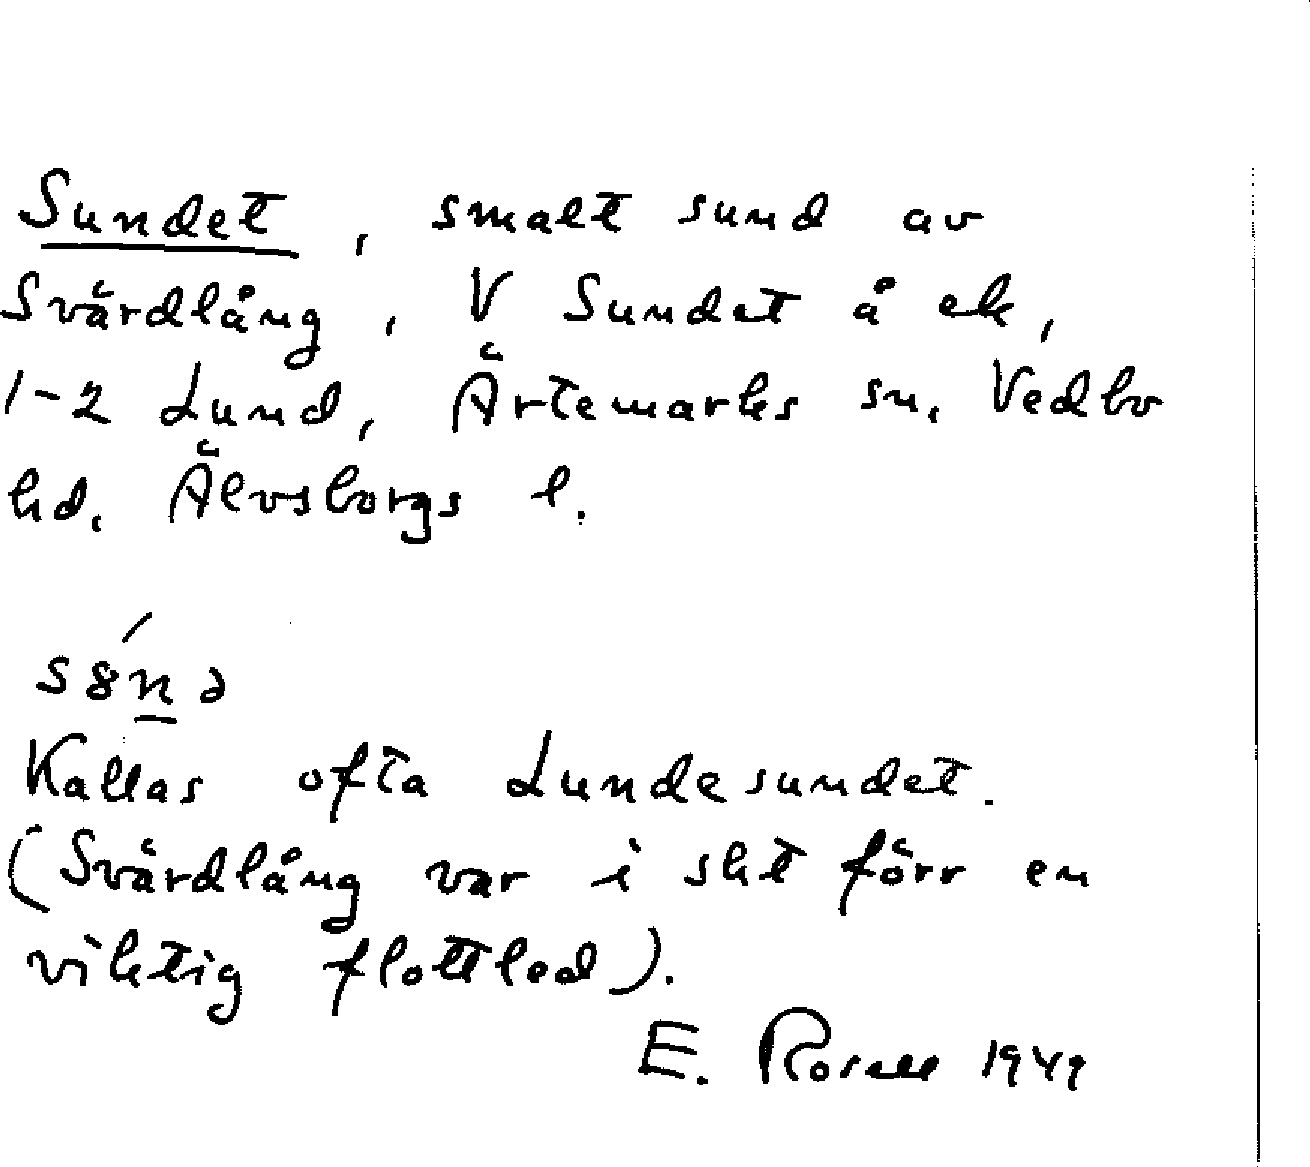 Sundet, smalt sund av
Svärdlång, V Sundet å ek,
1-2 Lund, Ärtemarks sn. Vedbo
hd. Älvsborgs l.
Kallas ofta Lundesundet.
(Svärdlång var i skt förr en
viktig flottled).
E. Rosell 1949